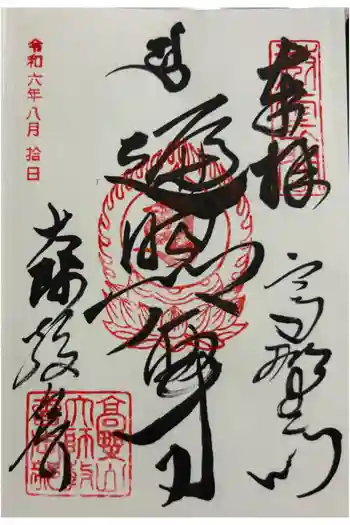 奉拝
高野山
遍照金剛
大師教会
令和六年八月拾日
高野山
大師教